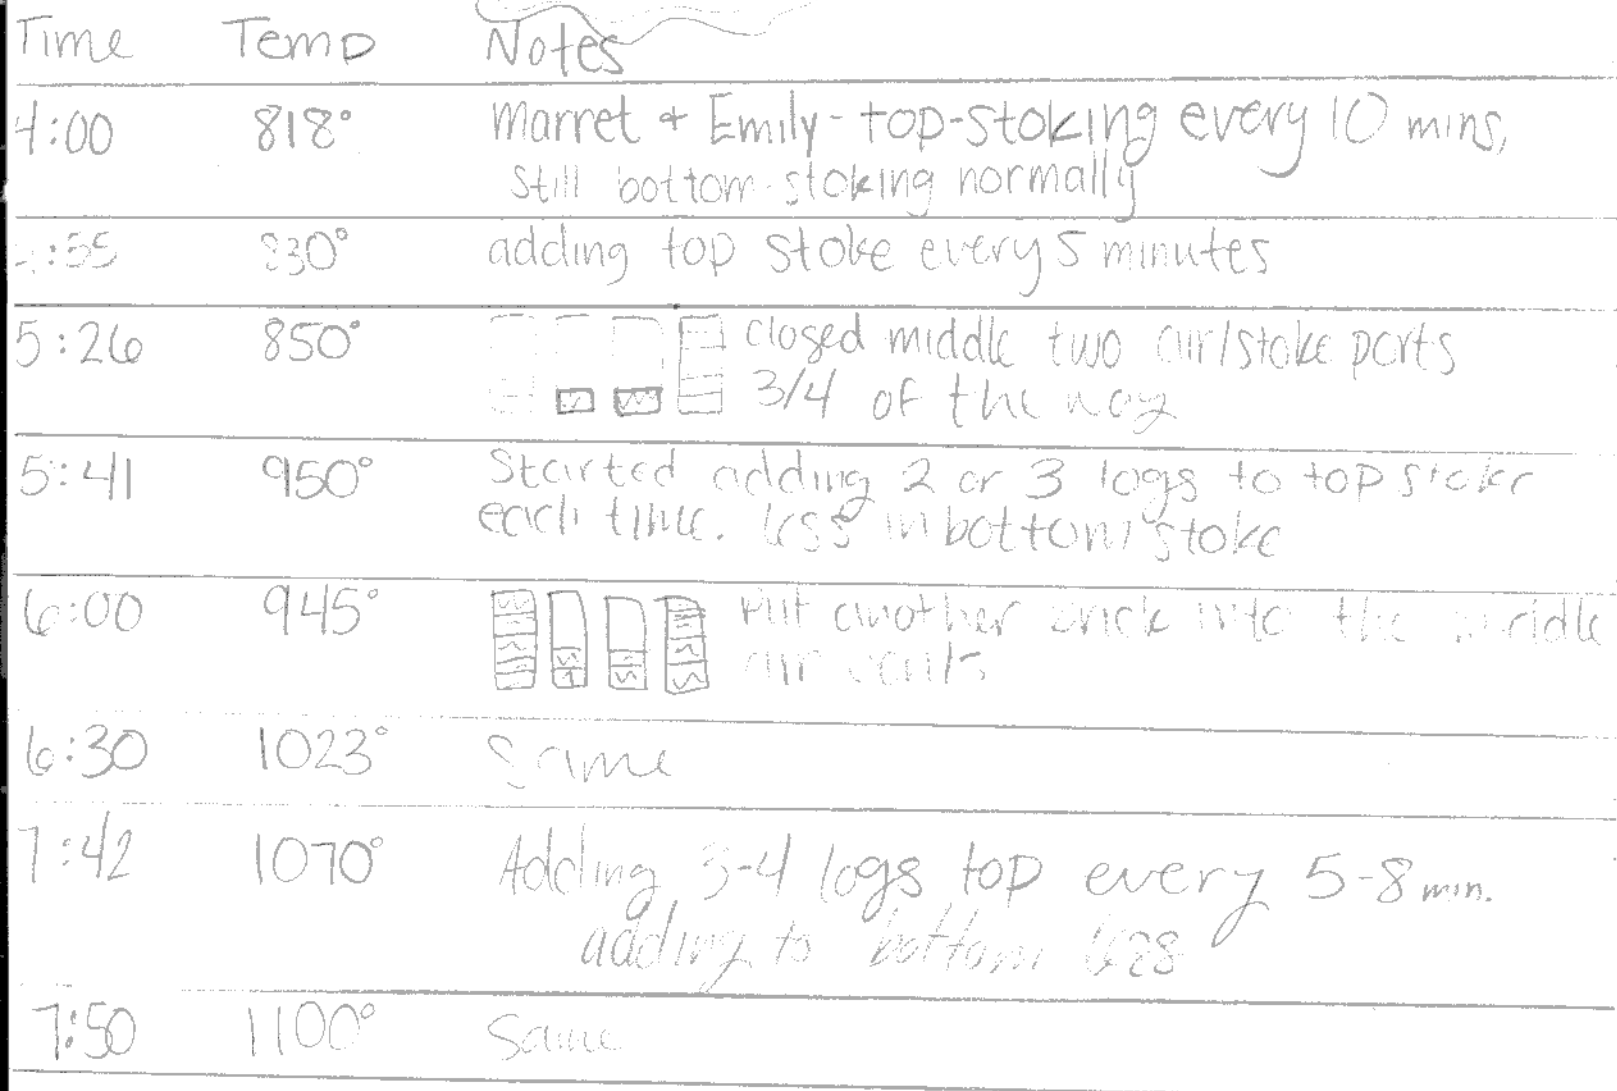 Time Temp Notes
4:00 818° Marret + Emily - top-stoking every 10 mins,
still bottom-stoking normally
:55 830° adding top stoke every 5 minutes
5:26 850° closed middle two air/stoke ports
3/4 of the way
5:41 950° Started adding 2 or 3 logs to top stoke
each time. less in bottom stoke
6:00 945° Put another brick into the middle
air vents
6:30 1023° Same
7:42 1070° Adding 3-4 logs top every 5-8 min.
adding to bottom less
7:50 1100° Same